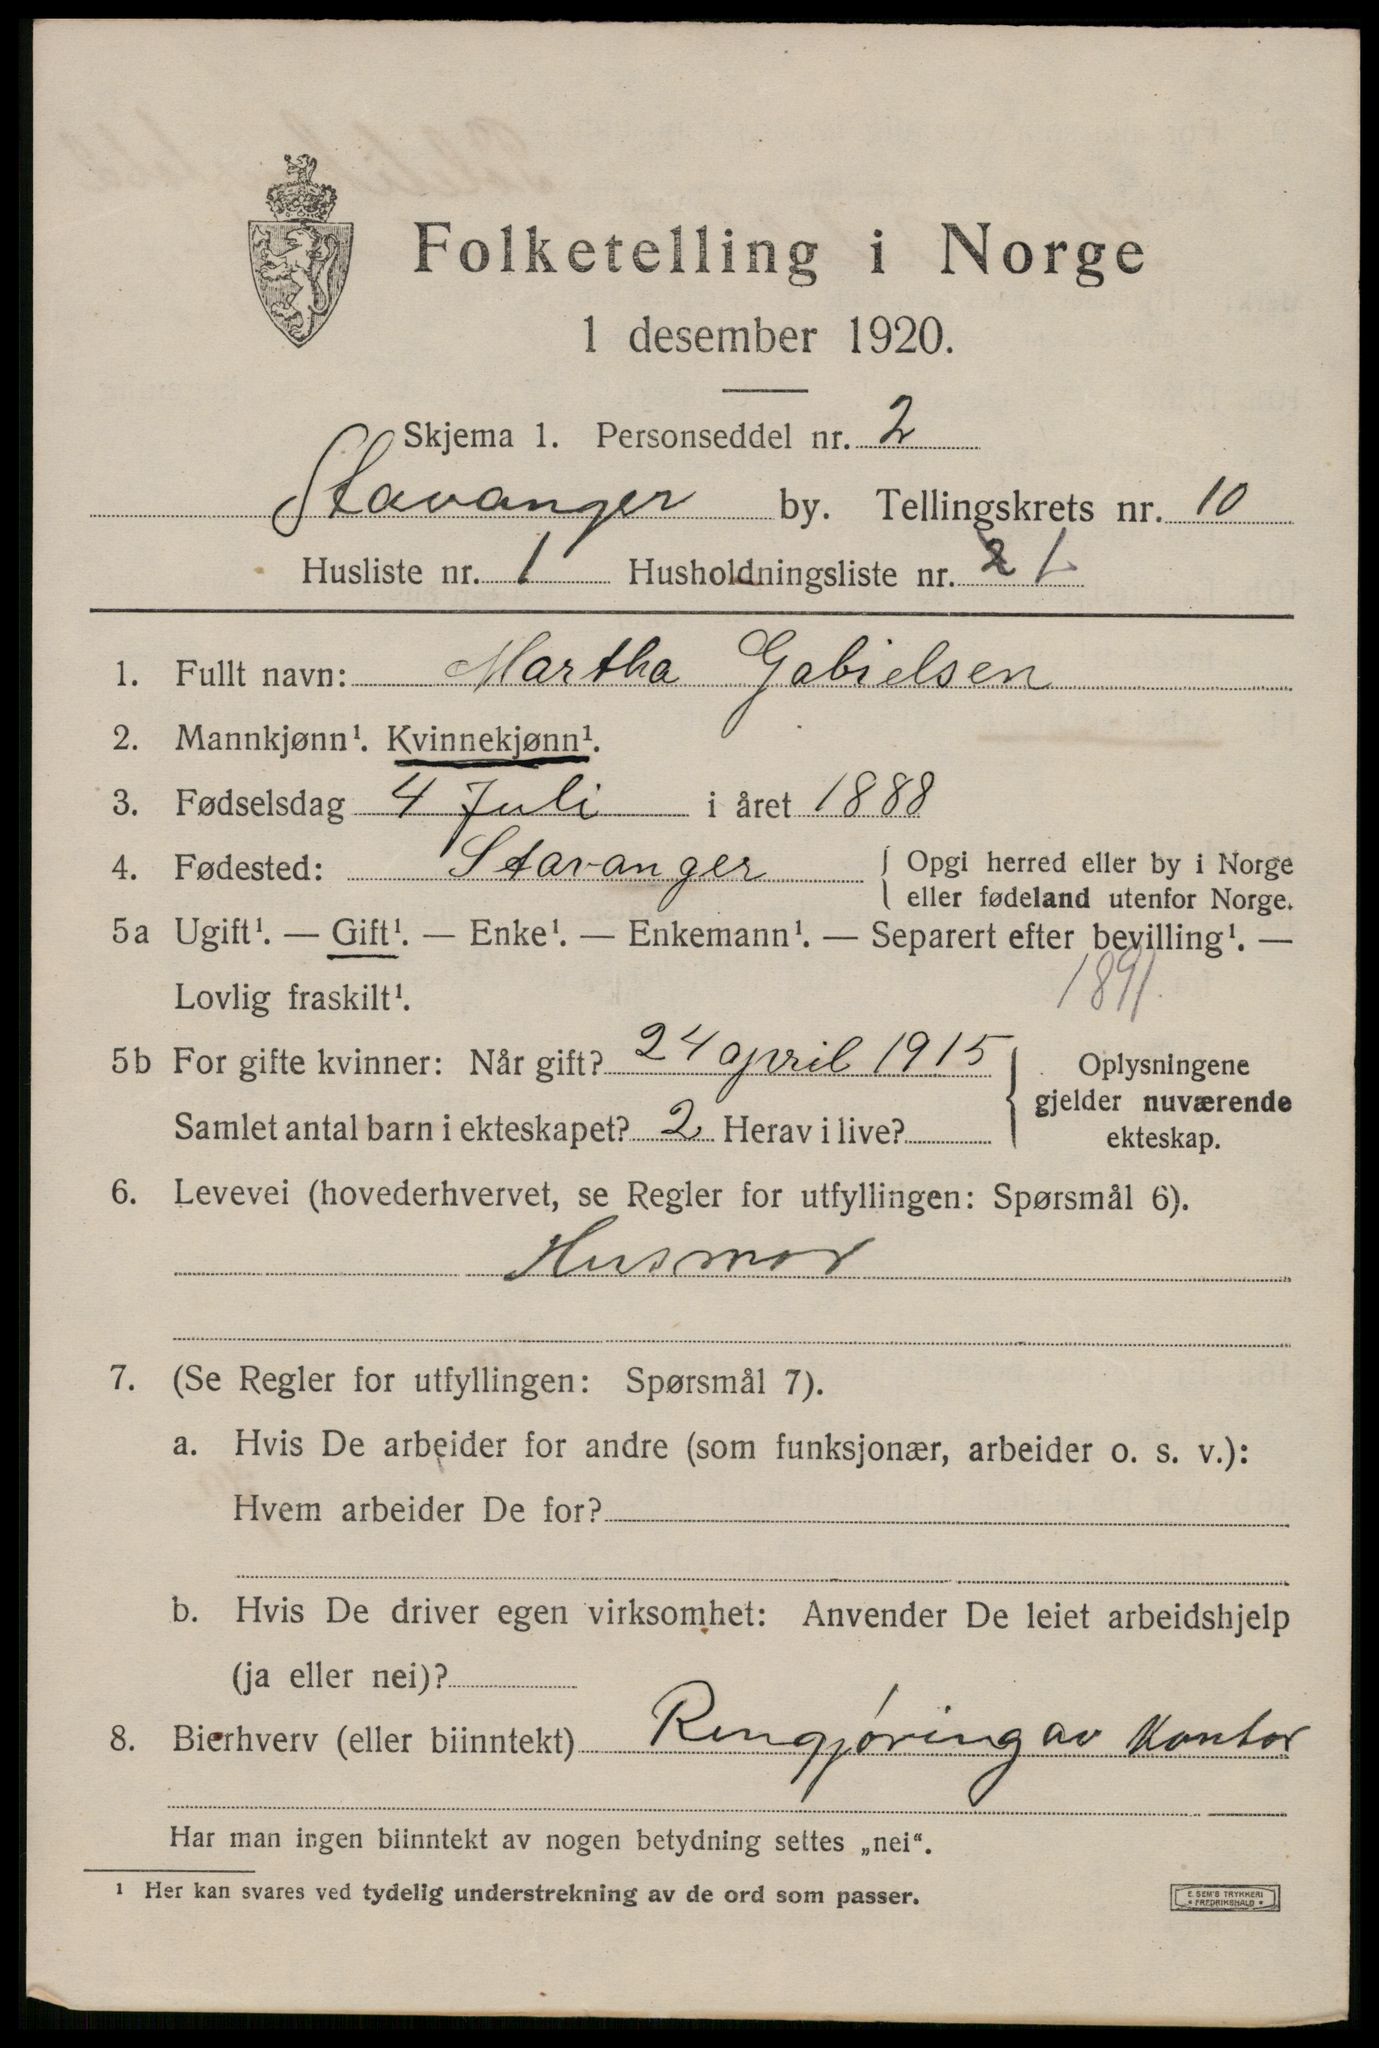 Folketelling i Norge
1 desember 1920.
Skjema 1. Personseddel nr. 2
Stavanger by. Tellingskrets nr. 10
Husliste nr. 1 Husholdningsliste nr. 2 1
1. Fullt navn: Martha Gabielsen
2. Mannkjønn¹. Kvinnekjønn¹.
3. Fødselsdag 4 Juli i året 1888
4. Fødested: Stavanger { Opgi herred eller by i Norge
eller fødeland utenfor Norge.
5a Ugift¹. — Gift¹. — Enke¹. — Enkemann¹. — Separert efter bevilling¹. —
Lovlig fraskilt¹. 1891.
5b For gifte kvinner: Når gift? 24 april 1915
Samlet antal barn i ekteskapet? 2 Herav i live?
{ Oplysningene
gjelder nuværende
ekteskap.
6. Levevei (hovederhvervet, se Regler for utfyllingen: Spørsmål 6).
Husmor
7. (Se Regler for utfyllingen: Spørsmål 7).
a. Hvis De arbeider for andre (som funksjonær, arbeider o. s. v.):
Hvem arbeider De for?
b. Hvis De driver egen virksomhet: Anvender De leiet arbeidshjelp
(ja eller nei)?
8. Bierhverv (eller biinntekt) Rengjøring av Kontor
Har man ingen biinntekt av nogen betydning settes „nei“.
¹ Her kan svares ved tydelig understrekning av de ord som passer.
E. SEM'S TRYKKERI
* FREDRIKSHALD *